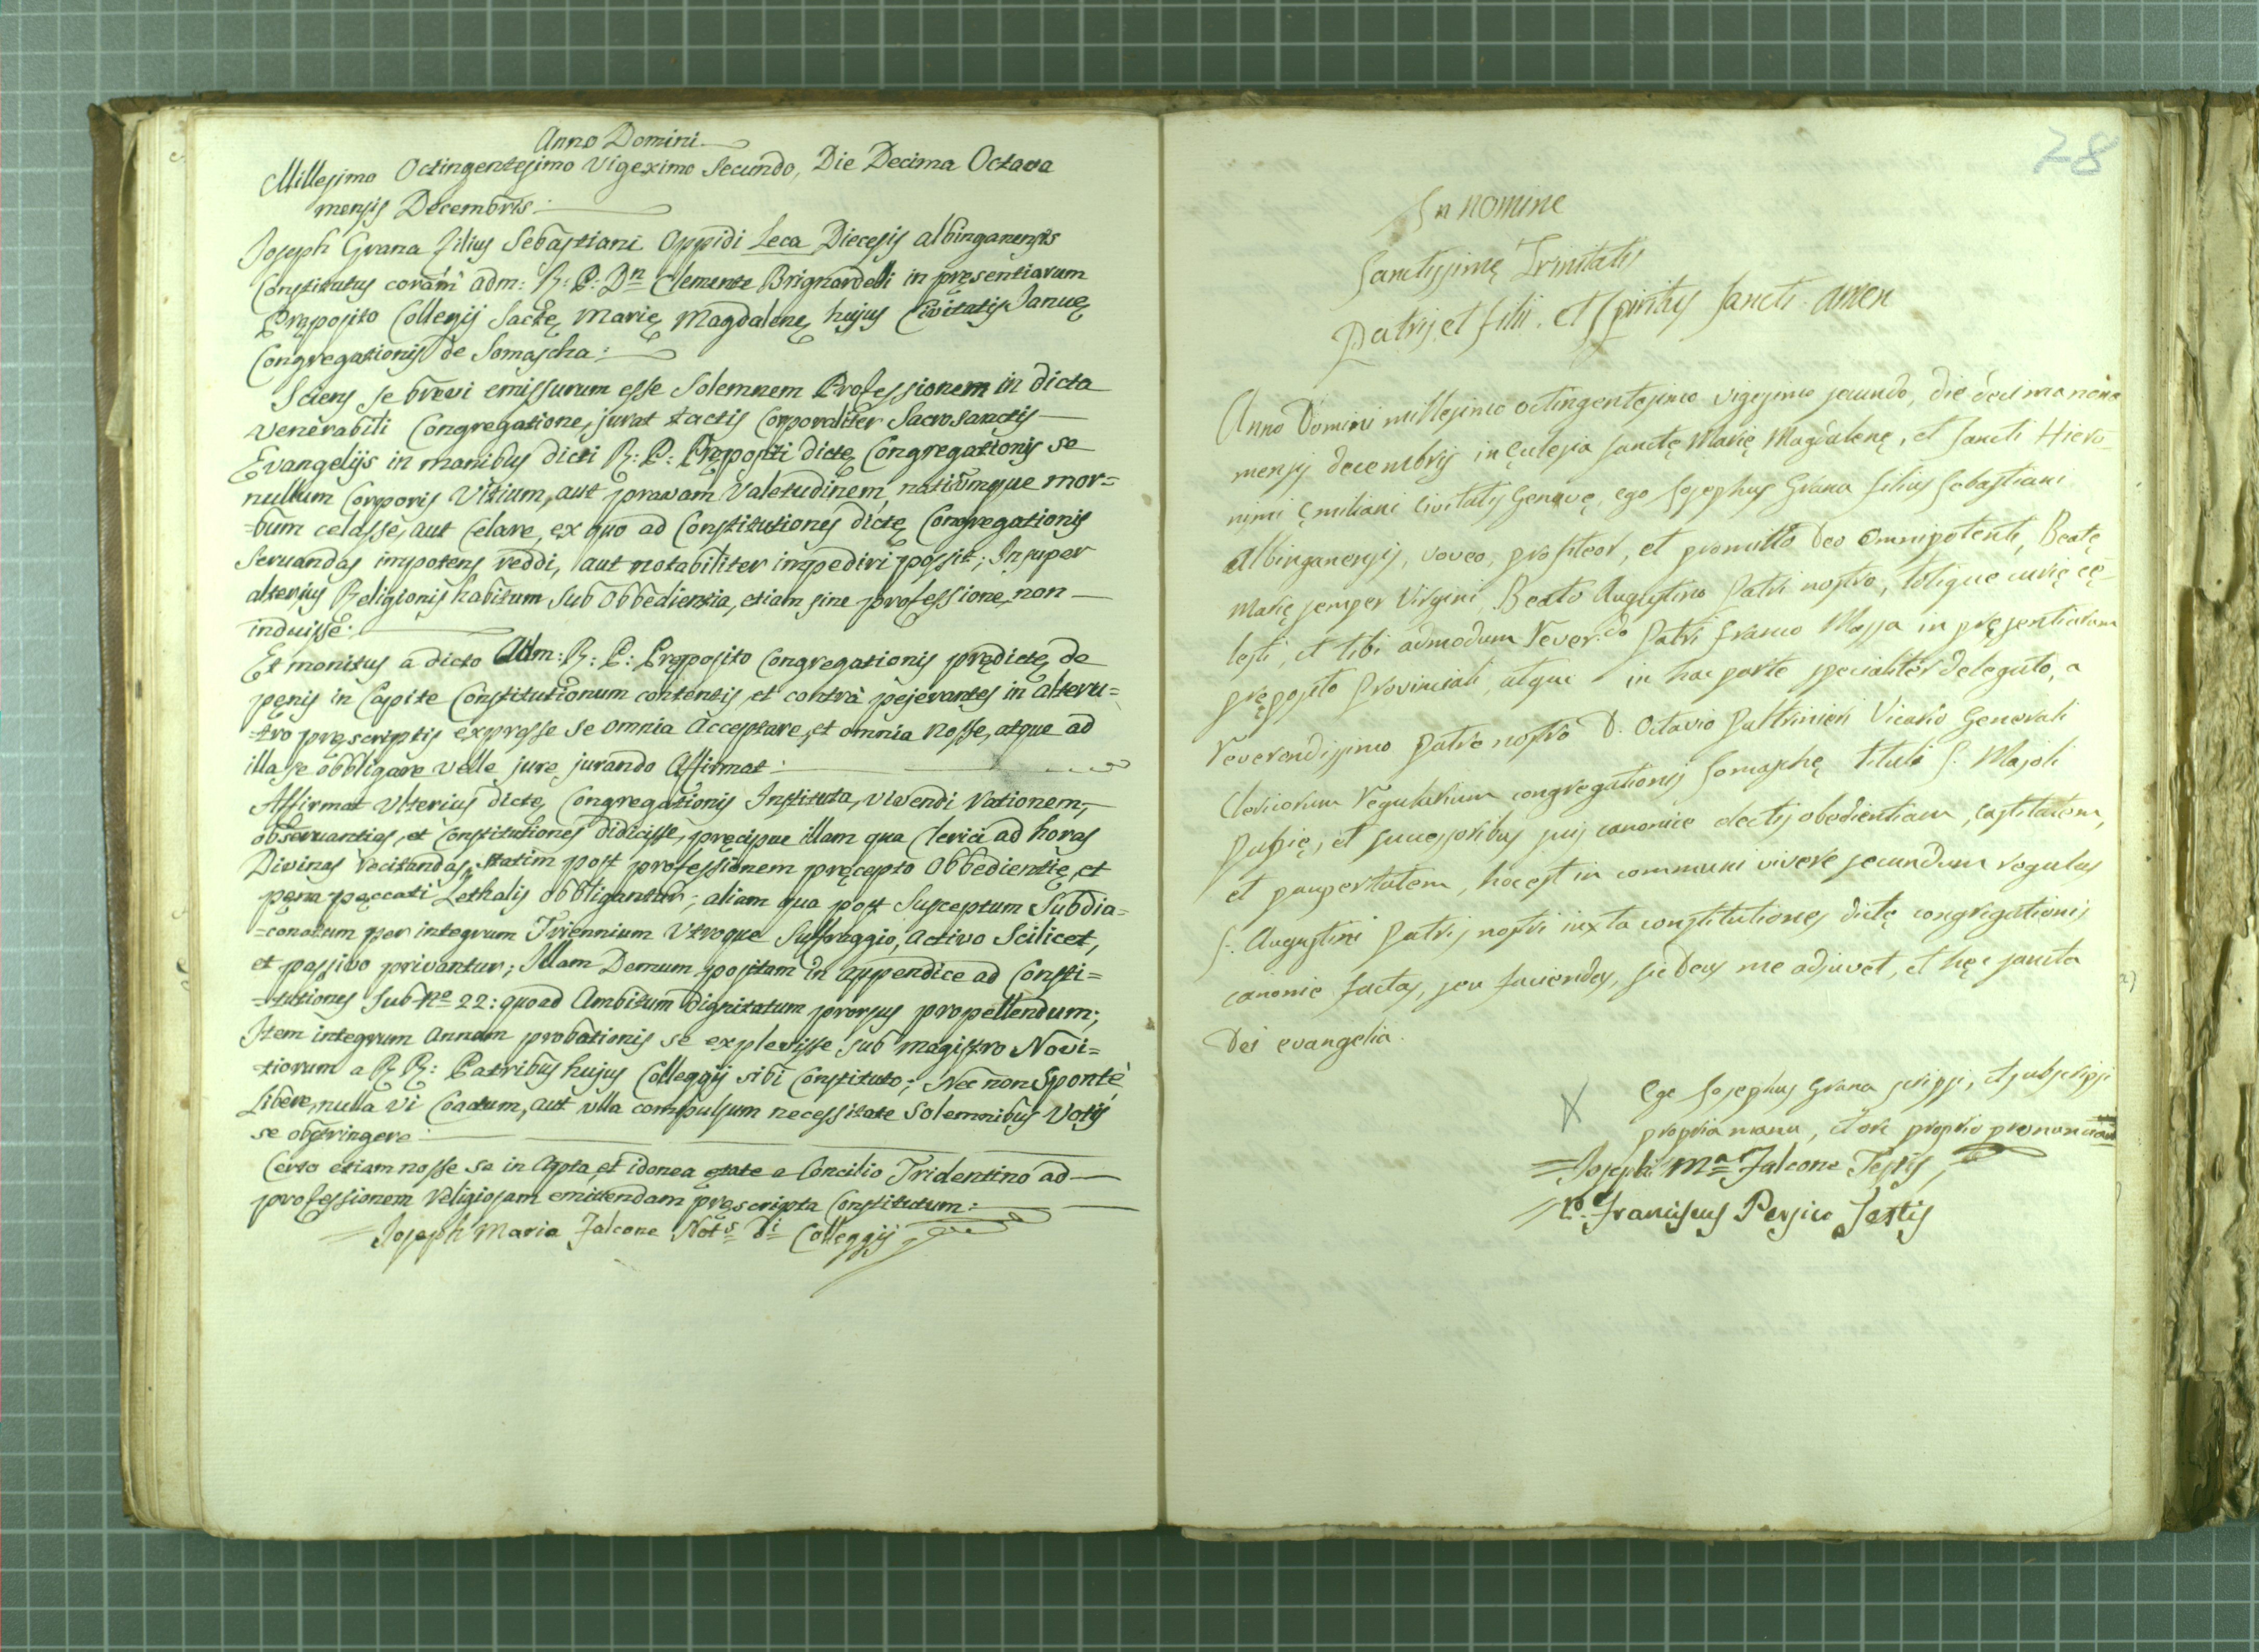 Anno Domini
Millesimo Octingentesimo Vigeximo Secundo, Die Decima Octava
mensis Decembris:
Joseph Grana Filius Sebastiani Oppidi Leca Diecesis albinganensis
Constitutus coram adm: R: P: Dn Clemente Brignardelli in pręsentiarum
Pręposito Collegij Sactę Marię Magdalenę hujus Civitatis Januę
Congregationis de Somascha:
Sciens se brevi emissurum esse Solemnem Professionem in dicta
venerabili Congregatione, jurat tactis Corporaliter Sacrosanctis
Evangelijs in manibus dicti R: P: Prępositi dictę Congregationis se
nullum Corporis Vitium, aut pravam Valetudinem, nativumque mor=
=bum celasse, aut Celare, ex quo ad Constitutiones dictę Congregationis
Servandas impotens reddi, aut notabiliter impediri possit; Insuper
alterius Religionis habitum Sub Obbedientia, etiam sine professione, non
induisse:
Et monitus a dicto Adm: R: P: Pręposito Congregationis prędictę de
pęnis in Capite Constitutionum contentis, et contrà pejerantes in alteru=
=tro pręscriptis expresse se omnia Acceptare, et omnia nosse, atque ad
illa se obbligare velle jure jurando Affirmat:
Affirmat Ulterius dictę Congregationis Instituta, vivendi rationem,
observantias, et Constitutiones didicisse, pręcipue illam qua Clerici ad horas
Divinas recitandas, statim post professionem pręcepto Obbedientię, et
pęna pęccati Lethalis obbligantur; aliam qua post Susceptum Subdia=
=conatum per integrum Triennium Utroque Suffraggio, Activo Scilicet,
et passivo privantur; Illam Demum positam in appendice ad Consti=
=tutiones Sub no 22: quoad Ambitum Dignitatum prorsus propellendum;
Item integrum Annum probationis se explevisse sub magistro Novi=
=tiorum a R R: Patribus hujus Colleggij sibi Constituto; Nec non Spontè,
Libere, nulla vi Coactum, aut ulla compulsum necessitate Solemnibus Votis
se obstringere:
Certo etiam nosse se in Apta, et idonea ętate a Concilio Tridentino ad
professionem religiosam emittendam pręscripta Constitutum:
Joseph Maria Falcone Nots Di Colleggij
28
In nomine
Sanctissimę Trinitatis
Patris et filii. et Spiritus Sancti. amen
Anno Domini millesimo octingentesimo vigesimo secundo, die decima nona
mensis decembris in Ęcclesia sanctę Marię Magdalenę, et Sancti Hiero-
nimi Ęmiliani civitatis Genuę, ego Josephus Grana filius Sebastiani
Albinganensis, voveo, profiteor, et promitto Deo Omnipotenti, Beatę
Marię semper Virgini, Beato Augustino Patri nostro, totique curię cę-
lesti, et tibi admodum Rever.do Patri Franco Massa in pręsentiarum
pręposito Provinciali, atque in hac parte specialiter delegato, a
Reverendissimo Patre nostro D. Octavio Paltrinieri Vicario Generali
Clericorum regularium congregationis Somaschę tituli S. Majoli
Papię, et successoribus suis canonice electis obedientiam, castitatem,
et paupertatem, hoc est in communi vivere secundum regulas
S. Augustini Patris nostri iuxta constitutiones dictę congregationis
canonice factas, seu faciendas, sic Deus me adjuvet, et hęc sancta
Dei evangelia.
X Ego Josephus Grana scripsi, et subscripsi
propria manu, et ore proprio pronunciavi
=Joseph Ma Falcone Testis,
= Franciscus Persico Testis